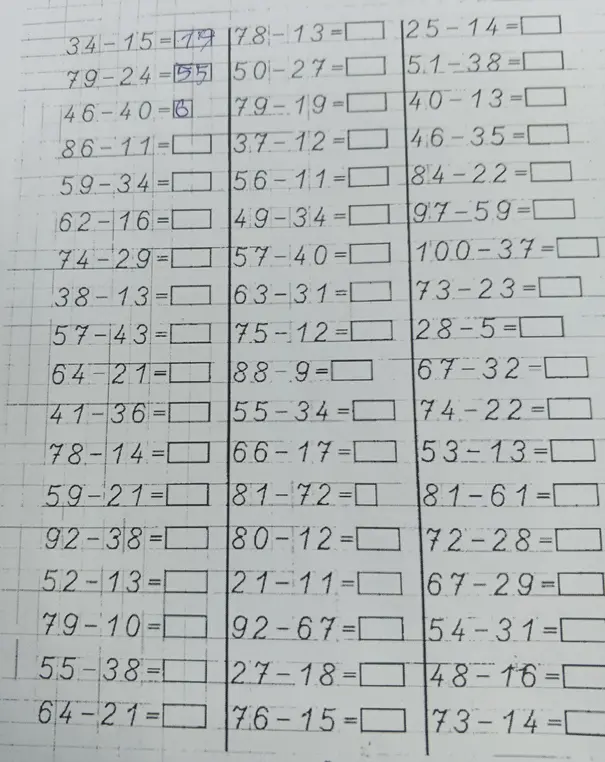 34-15=19
79-24=55
46-40=6
86-11=
59-34=
62-16=
74-29=
38-13=
57-43=
64-21=
41-36=
78-14=
59-21=
92-38=
52-13=
79-10=
55-38=
64-21=
78-13=
50-27=
79-19=
37-12=
56-11=
49-34=
57-40=
63-31=
75-12=
88-9=
55-34=
66-17=
81-72=
80-12=
21-11=
92-67=
27-18=
76-15=
25-14=
51-38=
40-13=
46-35=
84-22=
97-59=
100-37=
73-23=
28-5=
67-32=
74-22=
53-13=
81-61=
72-28=
67-29=
54-31=
48-16=
73-14=